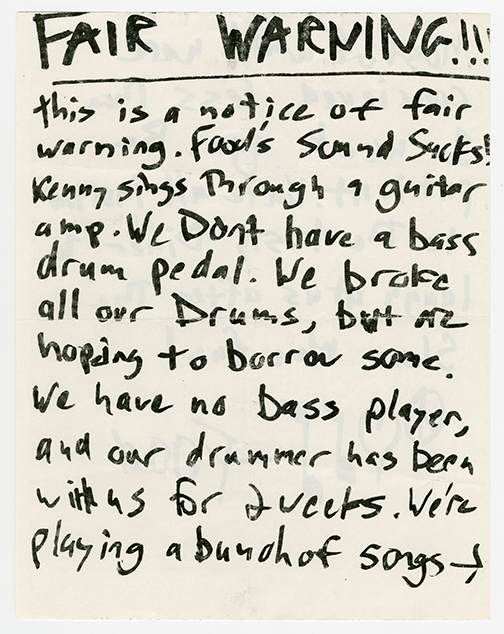 FAIR WARNING!!!
this is a notice of fair
warning. Food's Sound Sucks!
Kenny sings Through a guitar
amp. We Dont have a bass
drum pedal. We broke
all our Drums, but are
hoping to borrow some.
We have no bass player,
and our drummer has been
with us for 2 weeks. We're
playing a bunch of songs →